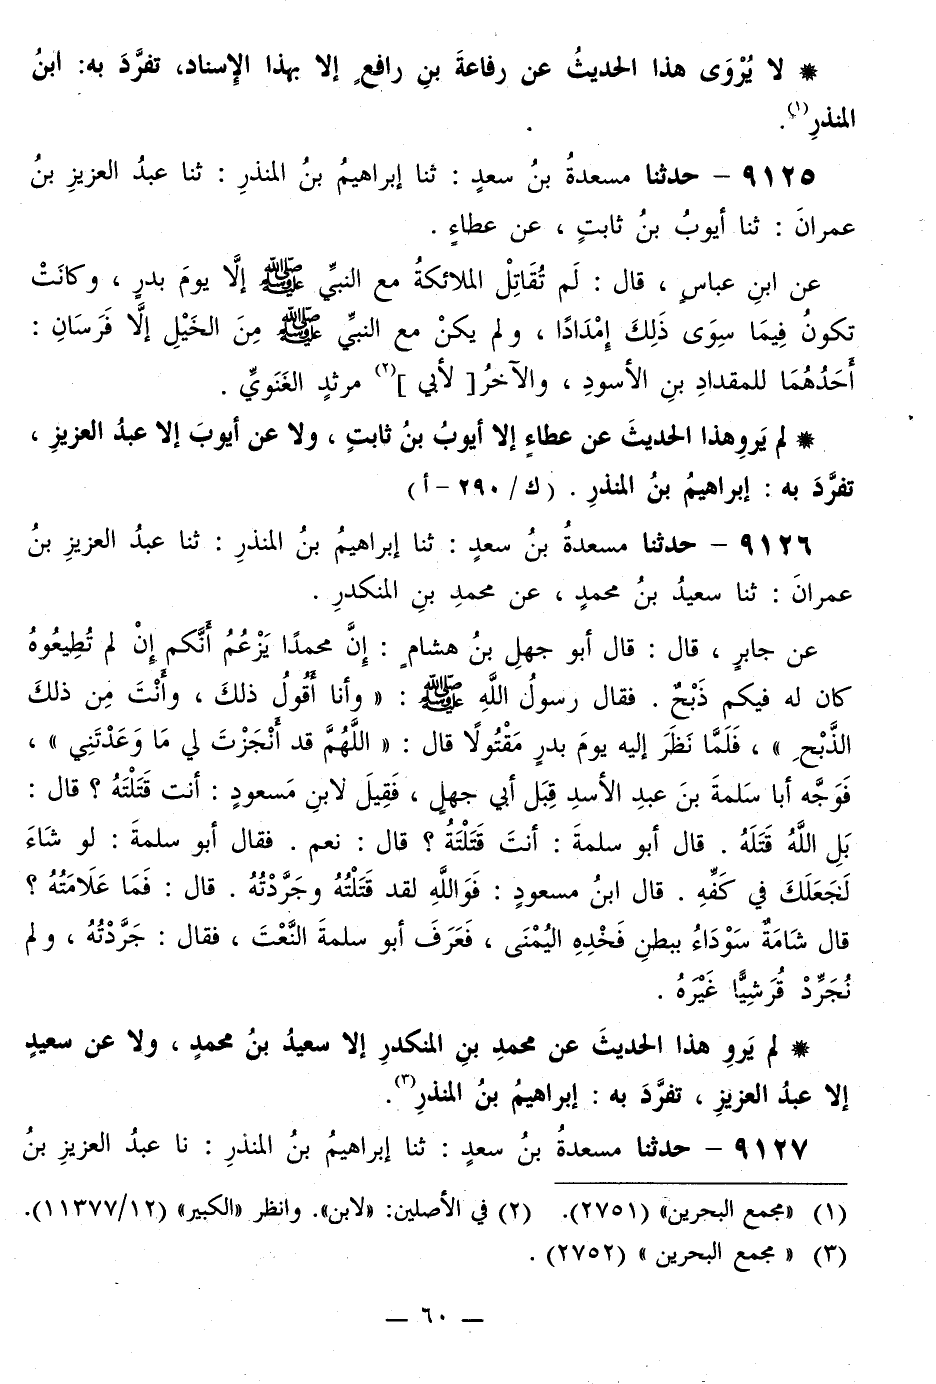 * لا يُرْوَى هذا الحديثُ عن رفاعةَ بنِ رافعٍ إلا بهذا الإِسناد، تفرَّدَ به: ابنُ
المنذرِ(١).
٩١٢٥ – حدثنا مسعدةُ بنُ سعدٍ : ثنا إبراهيمُ بنُ المنذرِ : ثنا عبدُ العزيزِ بنُ
عمرانَ : ثنا أيوبُ بنُ ثابتٍ ، عن عطاءٍ .
عن ابنِ عباسٍ ، قال : لَم تُقَاتِلْ الملائكةُ مع النبيِّ ﷺ إلَّا يومَ بدرٍ ، وكانَتْ
تكونُ فِيمَا سِوَى ذَلِكَ إمْدَادًا ، ولم يكنْ مع النبيِّ ﷺ مِنَ الخَيْلِ إلَّا فَرَسَانِ :
أَحَدُهُمَا للمقدادِ بنِ الأسودِ ، والآخرُ[ لأبي ](٢) مرثدٍ الغَنَويِّ .
* لم يَروِهذا الحديثَ عن عطاءٍ إلا أيوبُ بنُ ثابتٍ ، ولا عن أيوبَ إلا عبدُ العزيزِ ،
تفرَّدَ به : إبراهيمُ بنُ المنذرِ . (ك/ ٢٩٠ – أ)
٩١٢٦ – حدثنا مسعدةُ بنُ سعدٍ : ثنا إبراهيمُ بنُ المنذرِ : ثنا عبدُ العزيزِ بنُ
عمرانَ : ثنا سعيدُ بنُ محمدٍ ، عن محمدِ بنِ المنكدرِ .
عن جابرٍ ، قال : قال أبو جهلِ بنُ هشامٍ : إنَّ محمدًا يَزْعُمُ أَنَّكم إنْ لم تُطِيعُوهُ
كان له فيكم ذَبْحٌ . فقال رسولُ اللَّهِ ﷺ : « وأنا أَقُولُ ذلكَ ، وأَنْتَ مِن ذلكَ
الذَّبْحِ » ، فَلَمَّا نَظَرَ إليه يومَ بدرٍ مَقْتُولًا قال : « اللَّهُمَّ قد أَنْجَزْتَ لي مَا وَعَدْتَنِي » ،
فَوَجَّه أبا سَلمةَ بنَ عبدِ الأسدِ قِبَل أبي جهلٍ ، فَقِيلَ لابنِ مَسعودٍ : أنت قَتَلْتَهُ ؟ قال :
بَلِ اللَّهُ قَتَلَهُ . قال أبو سلمةَ : أنتَ قَتَلْتَهُ ؟ قال : نعم . فقال أبو سلمةَ : لو شَاءَ
لَجَعَلَكَ في كَفِّهِ . قال ابنُ مسعودٍ : فَوَاللَّهِ لقد قَتَلْتُهُ وجَرَّدْتُهُ . قال : فَمَا عَلَامَتُهُ ؟
قال شَامَةٌ سَوْدَاءُ ببطنِ فَخْدِهِ اليُمْنَى ، فَعَرَفَ أبو سلمةَ النَّعْتَ ، فقال : جَرَّدْتُهُ ، ولم
نُجَرِّدْ قُرَشِيًّا غَيْرَهُ .
* لم يَروِ هذا الحديثَ عن محمدِ بنِ المنكدرِ إلا سعيدُ بنُ محمدٍ ، ولا عن سعيدٍ
إلا عبدُ العزيزِ ، تفرَّدَ به : إبراهيمُ بنُ المنذرِ(٣).
٩١٢٧ – حدثنا مسعدةُ بنُ سعدٍ : ثنا إبراهيمُ بنُ المنذرِ : نا عبدُ العزيزِ بنُ
(١) «مجمع البحرين» (٢٧٥١). (٢) في الأصلين: «لابن». وانظر «الكبير» (١١٣٧٧/١٢).
(٣) « مجمع البحرين » (٢٧٥٢) .
— ٦٠ —